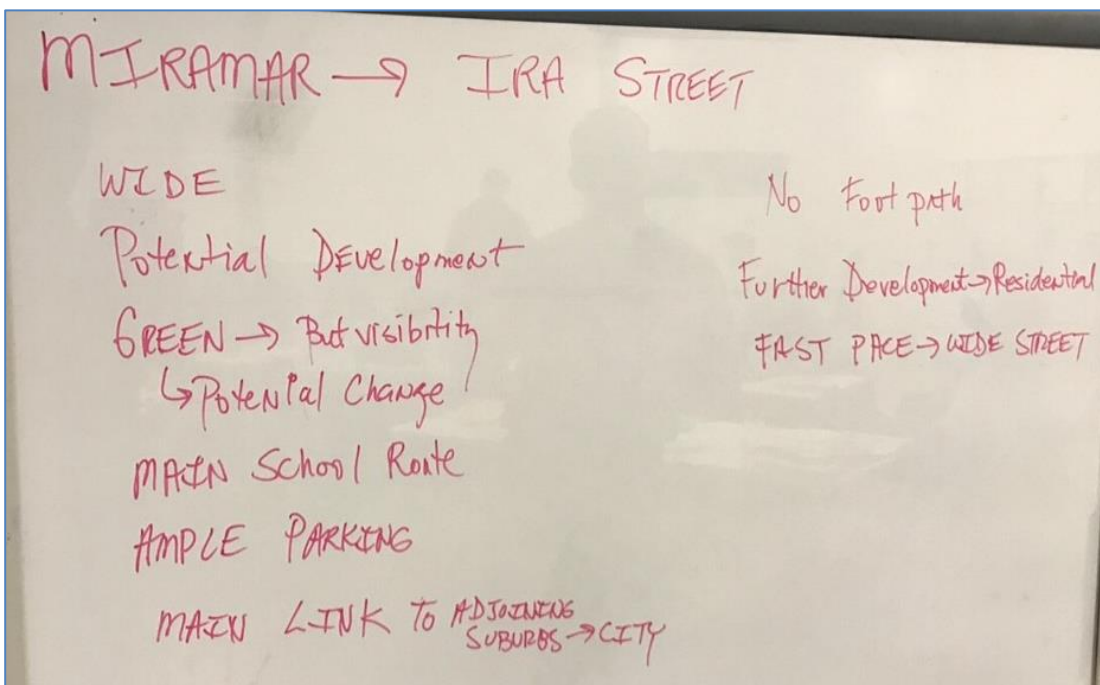 MIRAMAR → IRA STREET
WIDE
Potential Development
GREEN → But visibility
↳ Potential Change
MAIN School Route
AMPLE PARKING
MAIN LINK TO ADJOINING
SUBURBS → CITY
No Footpath
Further Development → Residential
FAST PACE → WIDE STREET